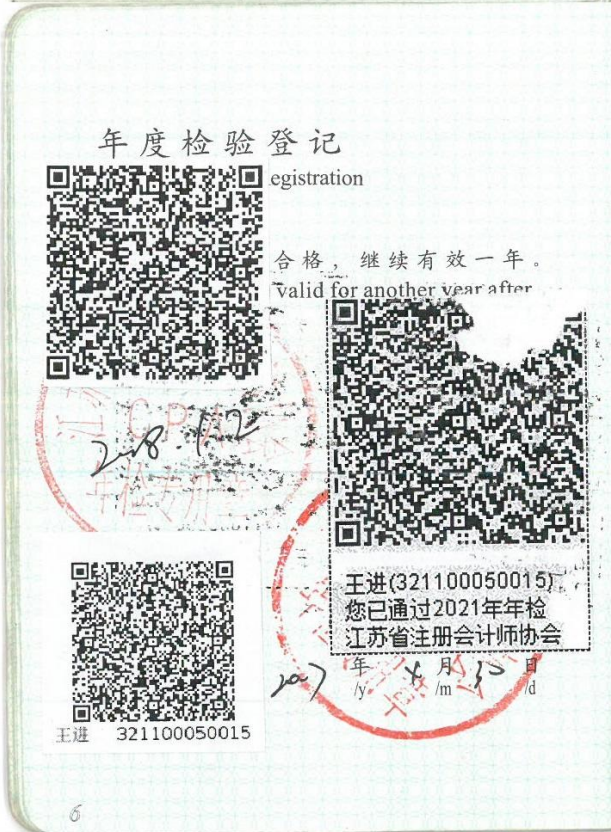 年度检验登记
egistration
合格，继续有效一年。
valid for another year after
CPA
2018.1.2
王进(321100050015)
您已通过2021年年检
江苏省注册会计师协会
2017 年 4 月 30 日
/y /m /d
王进 321100050015
6